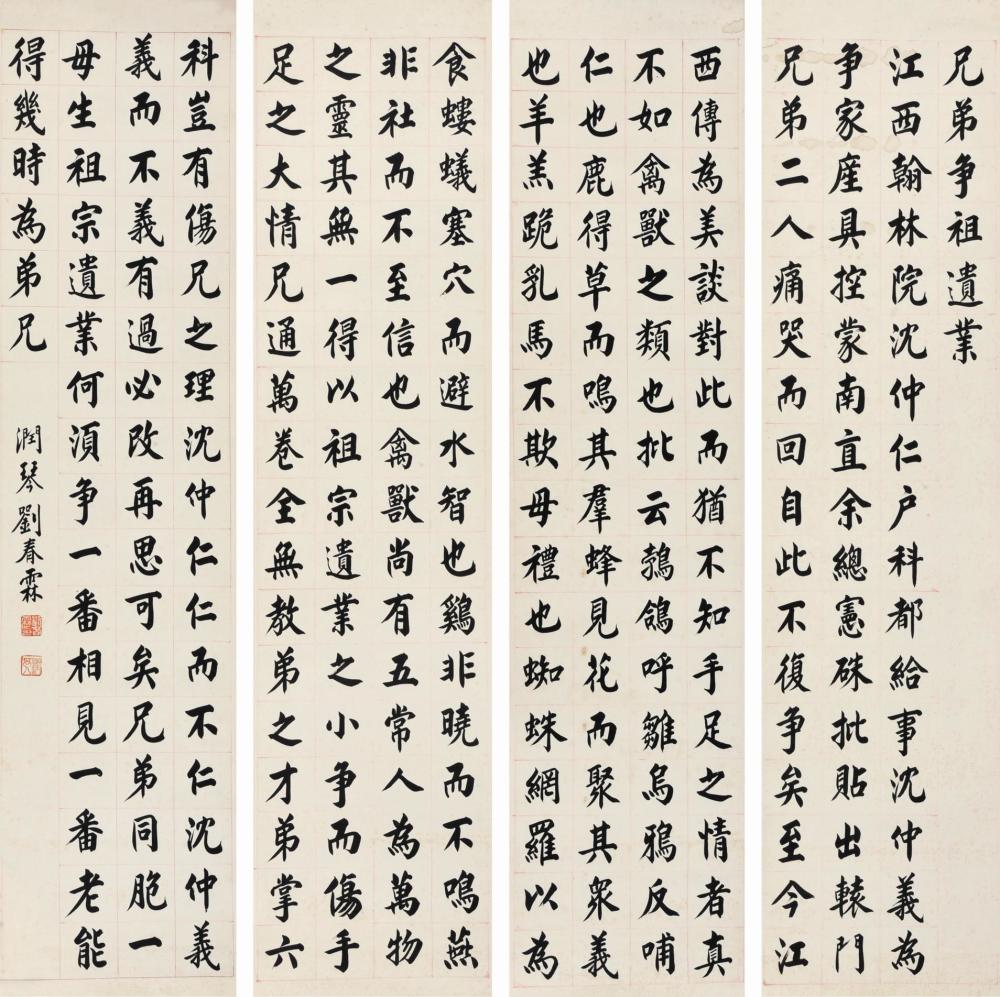 兄弟争祖遺業
江西翰林院沈仲仁户科都給事沈仲義為
争家産具控蒙南直余總憲硃批貼出轅門
兄弟二人痛哭而回自此不復争矣至今江
西傳為美談對此而猶不知手足之情者真
不如禽獸之類也批云鵓鴿呼雛烏鴉反哺
仁也鹿得草而鳴其羣蜂見花而聚其衆義
也羊羔跪乳馬不欺母禮也蜘蛛網羅以為
食螻蟻塞穴而避水智也鷄非曉而不鳴燕
非社而不至信也禽獸尚有五常人為萬物
之靈其無一得以祖宗遺業之小争而傷手
足之大情兄通萬卷全無教弟之才弟掌六
科豈有傷兄之理沈仲仁仁而不仁沈仲義
義而不義有過必改再思可矣兄弟同胞一
母生祖宗遺業何湏争一番相見一番老能
得幾時為弟兄
潤琴劉春霖